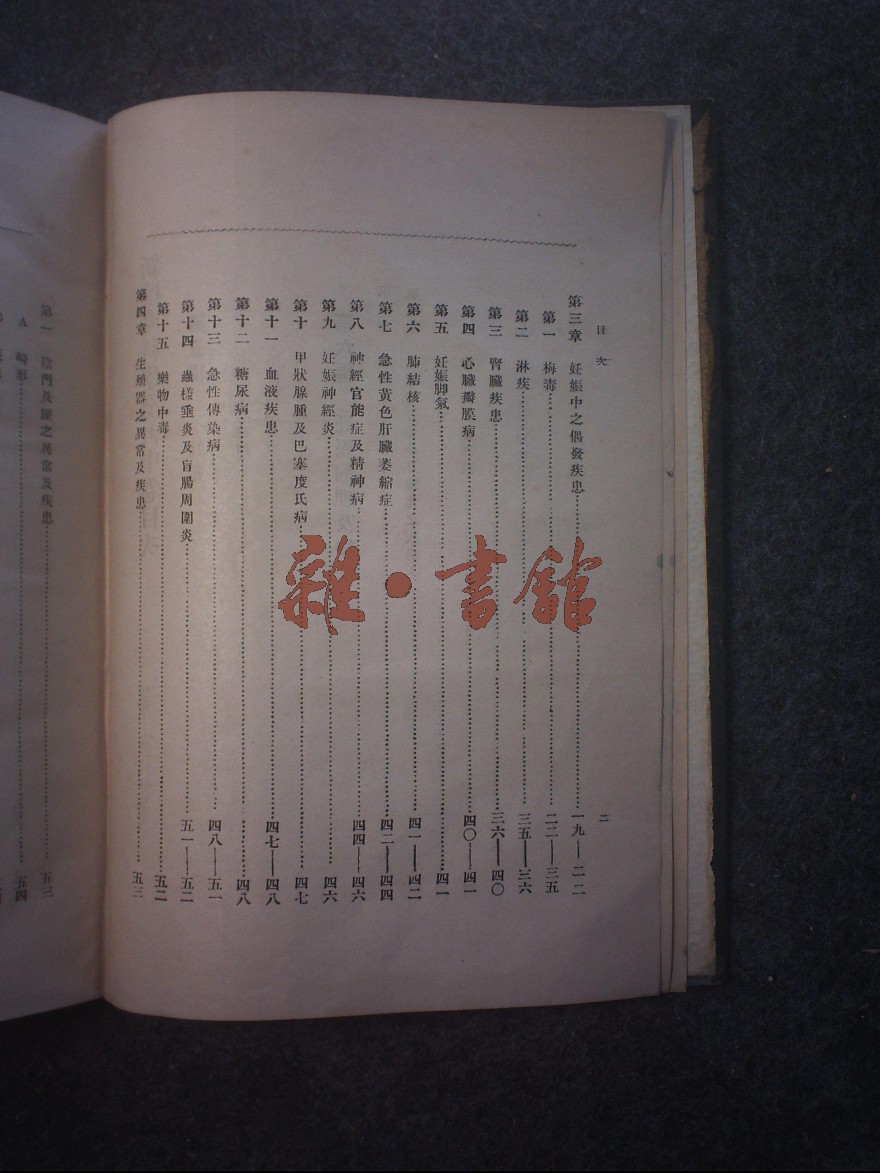 目次
二
第三章 妊娠中之偶發疾患 一九—二二
第一 梅毒 二二—三五
第二 淋疾 三五—三六
第三 腎臟疾患 三六—四〇
第四 心臟瓣膜病 四〇—四一
第五 妊娠脚氣 四一
第六 肺結核 四一—四二
第七 急性黃色肝臟萎縮症 四二—四四
第八 神經官能症及精神病 四四—四六
第九 妊娠神經炎 四六
第十 甲狀腺腫及巴塞度氏病 四七
第十一 血液疾患 四七—四八
第十二 糖尿病 四八
第十三 急性傳染病 四八—五一
第十四 蟲樣垂炎及盲腸周圍炎 五一—五二
第十五 藥物中毒 五二
第四章 生殖器之異常及疾患 五三
第一 陰門及膣之異常及疾患 五三
A 畸形 五四
雜·書館